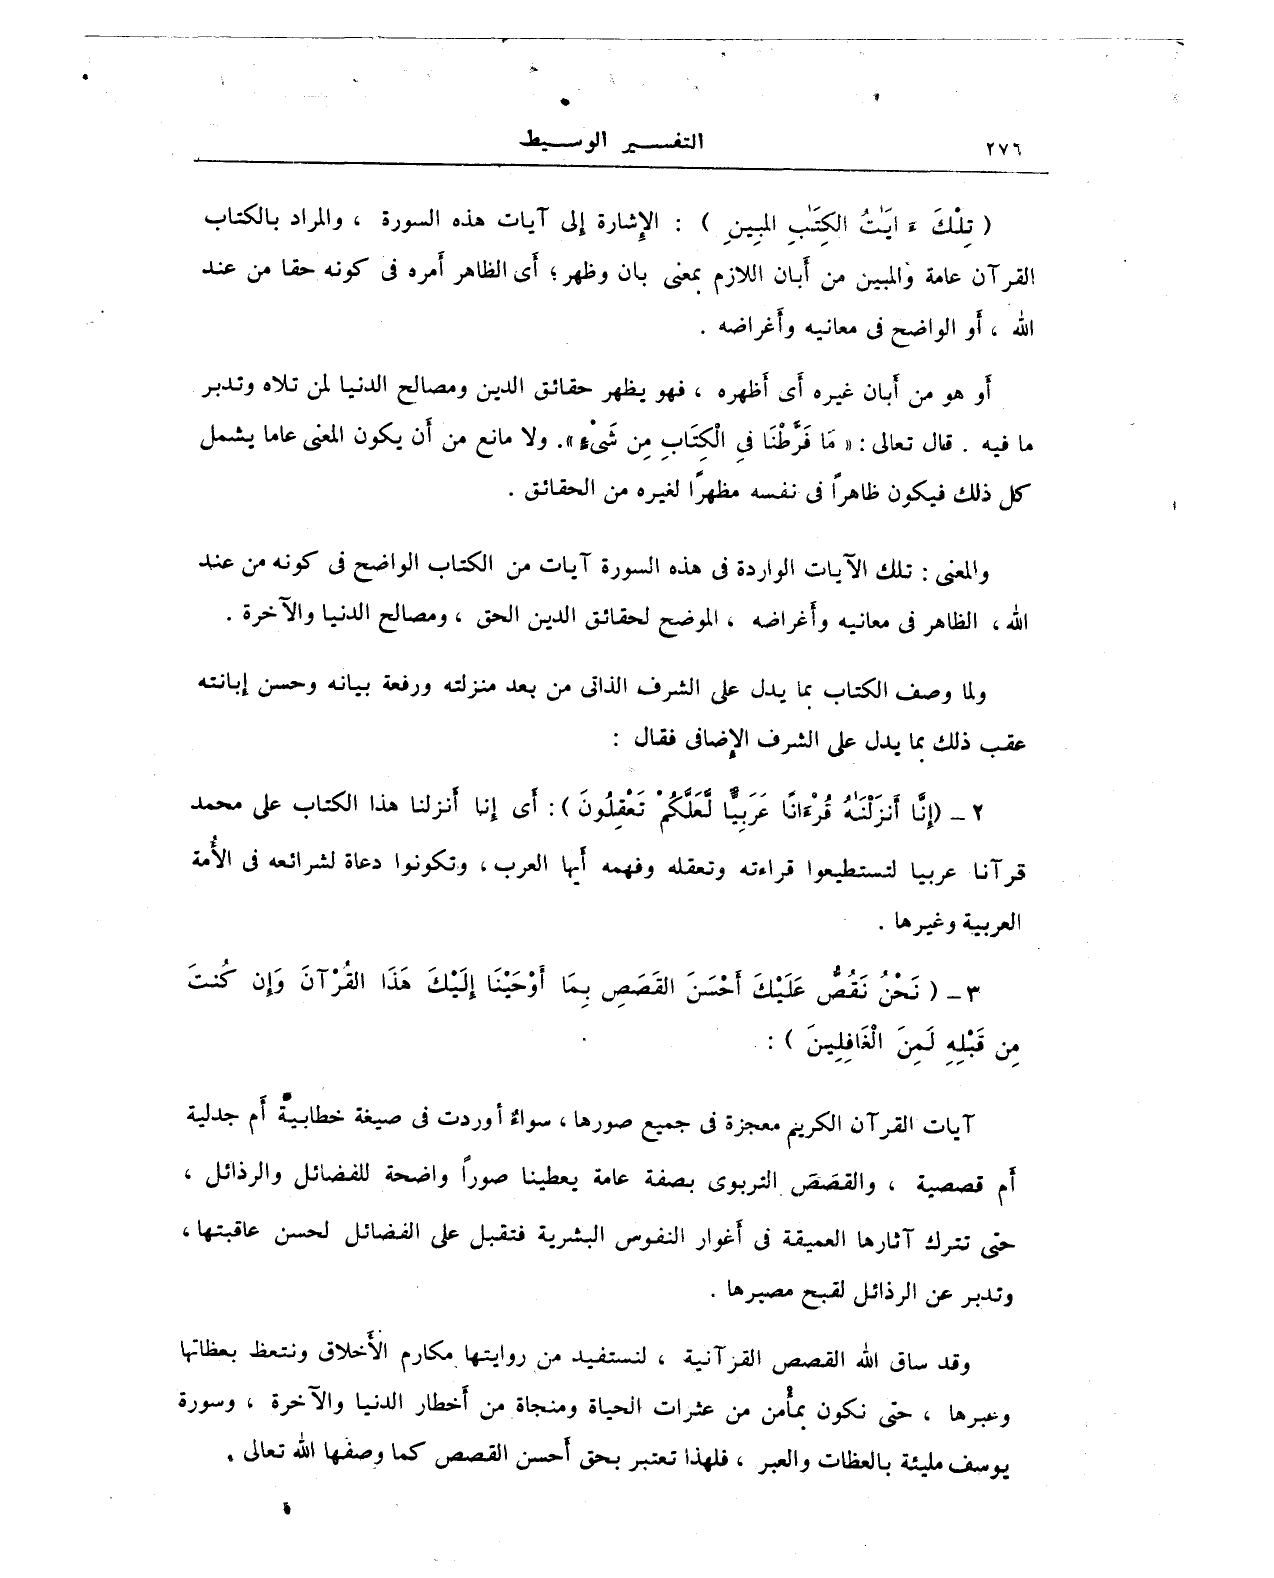 ٢٧٦
التفسير الوسيط
( تِلْكَ ءَ ايَٰتُ الكِتَٰبِ المبِينِ ) : الإِشارة إلى آيات هذه السورة ، والمراد بالكتاب
القرآن عامة والمبين من أَبان اللازم بمعنى بان وظهر؛ أَى الظاهر أَمره فى كونه حقا من عند
الله ، أَو الواضح فى معانيه وأَغراضه .
أَو هو من أَبان غيره أَى أَظهره ، فهو يظهر حقائق الدين ومصالح الدنيا لمن تلاه وتدبر
ما فيه . قال تعالى : « مَا فَرَّطْنَا فِى الْكِتَابِ مِن شَىْءٍ ». ولا مانع من أَن يكون المعنى عاما يشمل
كل ذلك فيكون ظاهراً فى نفسه مظهرًا لغيره من الحقائق .
والمعنى : تلك الآيات الواردة فى هذه السورة آيات من الكتاب الواضح فى كونه من عند
الله ، الظاهر فى معانيه وأَغراضه ، الموضح لحقائق الدين الحق ، ومصالح الدنيا والآخرة .
ولما وصف الكتاب بما يدل على الشرف الذاتى من بعد منزلته ورفعة بيانه وحسن إبانته
عقب ذلك بما يدل على الشرف الإِضافى فقال :
٢ – (إِنَّا أَنزَلْنَٰهُ قُرْءَانًا عَرَبِيًّا لَّعَلَّكُمْ تَعْقِلُونَ ) : أَى إنا أَنزلنا هذا الكتاب على محمد
قرآنا عربيا لتستطيعوا قراءته وتعقله وفهمه أَيها العرب ، وتكونوا دعاة لشرائعه فى الأُمة
العربية وغيرها .
٣ – ( نَحْنُ نَقُصُّ عَلَيْكَ أَحْسَنَ القَصَصِ بِمَا أَوْحَيْنَا إِلَيْكَ هَذَا القُرْآنَ وَإِن كُنتَ
مِن قَبْلِهِ لَمِنَ الْغَافِلِينَ ) :
آيات القرآن الكريم معجزة فى جميع صورها ، سواءٌ أوردت فى صيغة خطابية أَم جدلية
أَم قصصية ، والقَصَصَ التربوى بصفة عامة يعطينا صوراً واضحة للفضائل والرذائل ،
حتى تترك آثارها العميقة فى أَغوار النفوس البشرية فتقبل على الفضائل لحسن عاقبتها ،
وتدبر عن الرذائل لقبح مصيرها .
وقد ساق الله القصص القرآنية ، لنستفيد من روايتها مكارم الأَخلاق ونتعظ بعظاتها
وعبرها ، حتى نكون بمأْمن من عثرات الحياة ومنجاة من أَخطار الدنيا والآخرة ، وسورة
يوسف مليئة بالعظات والعبر ، فلهذا تعتبر بحق أَحسن القصص كما وصفها الله تعالى .